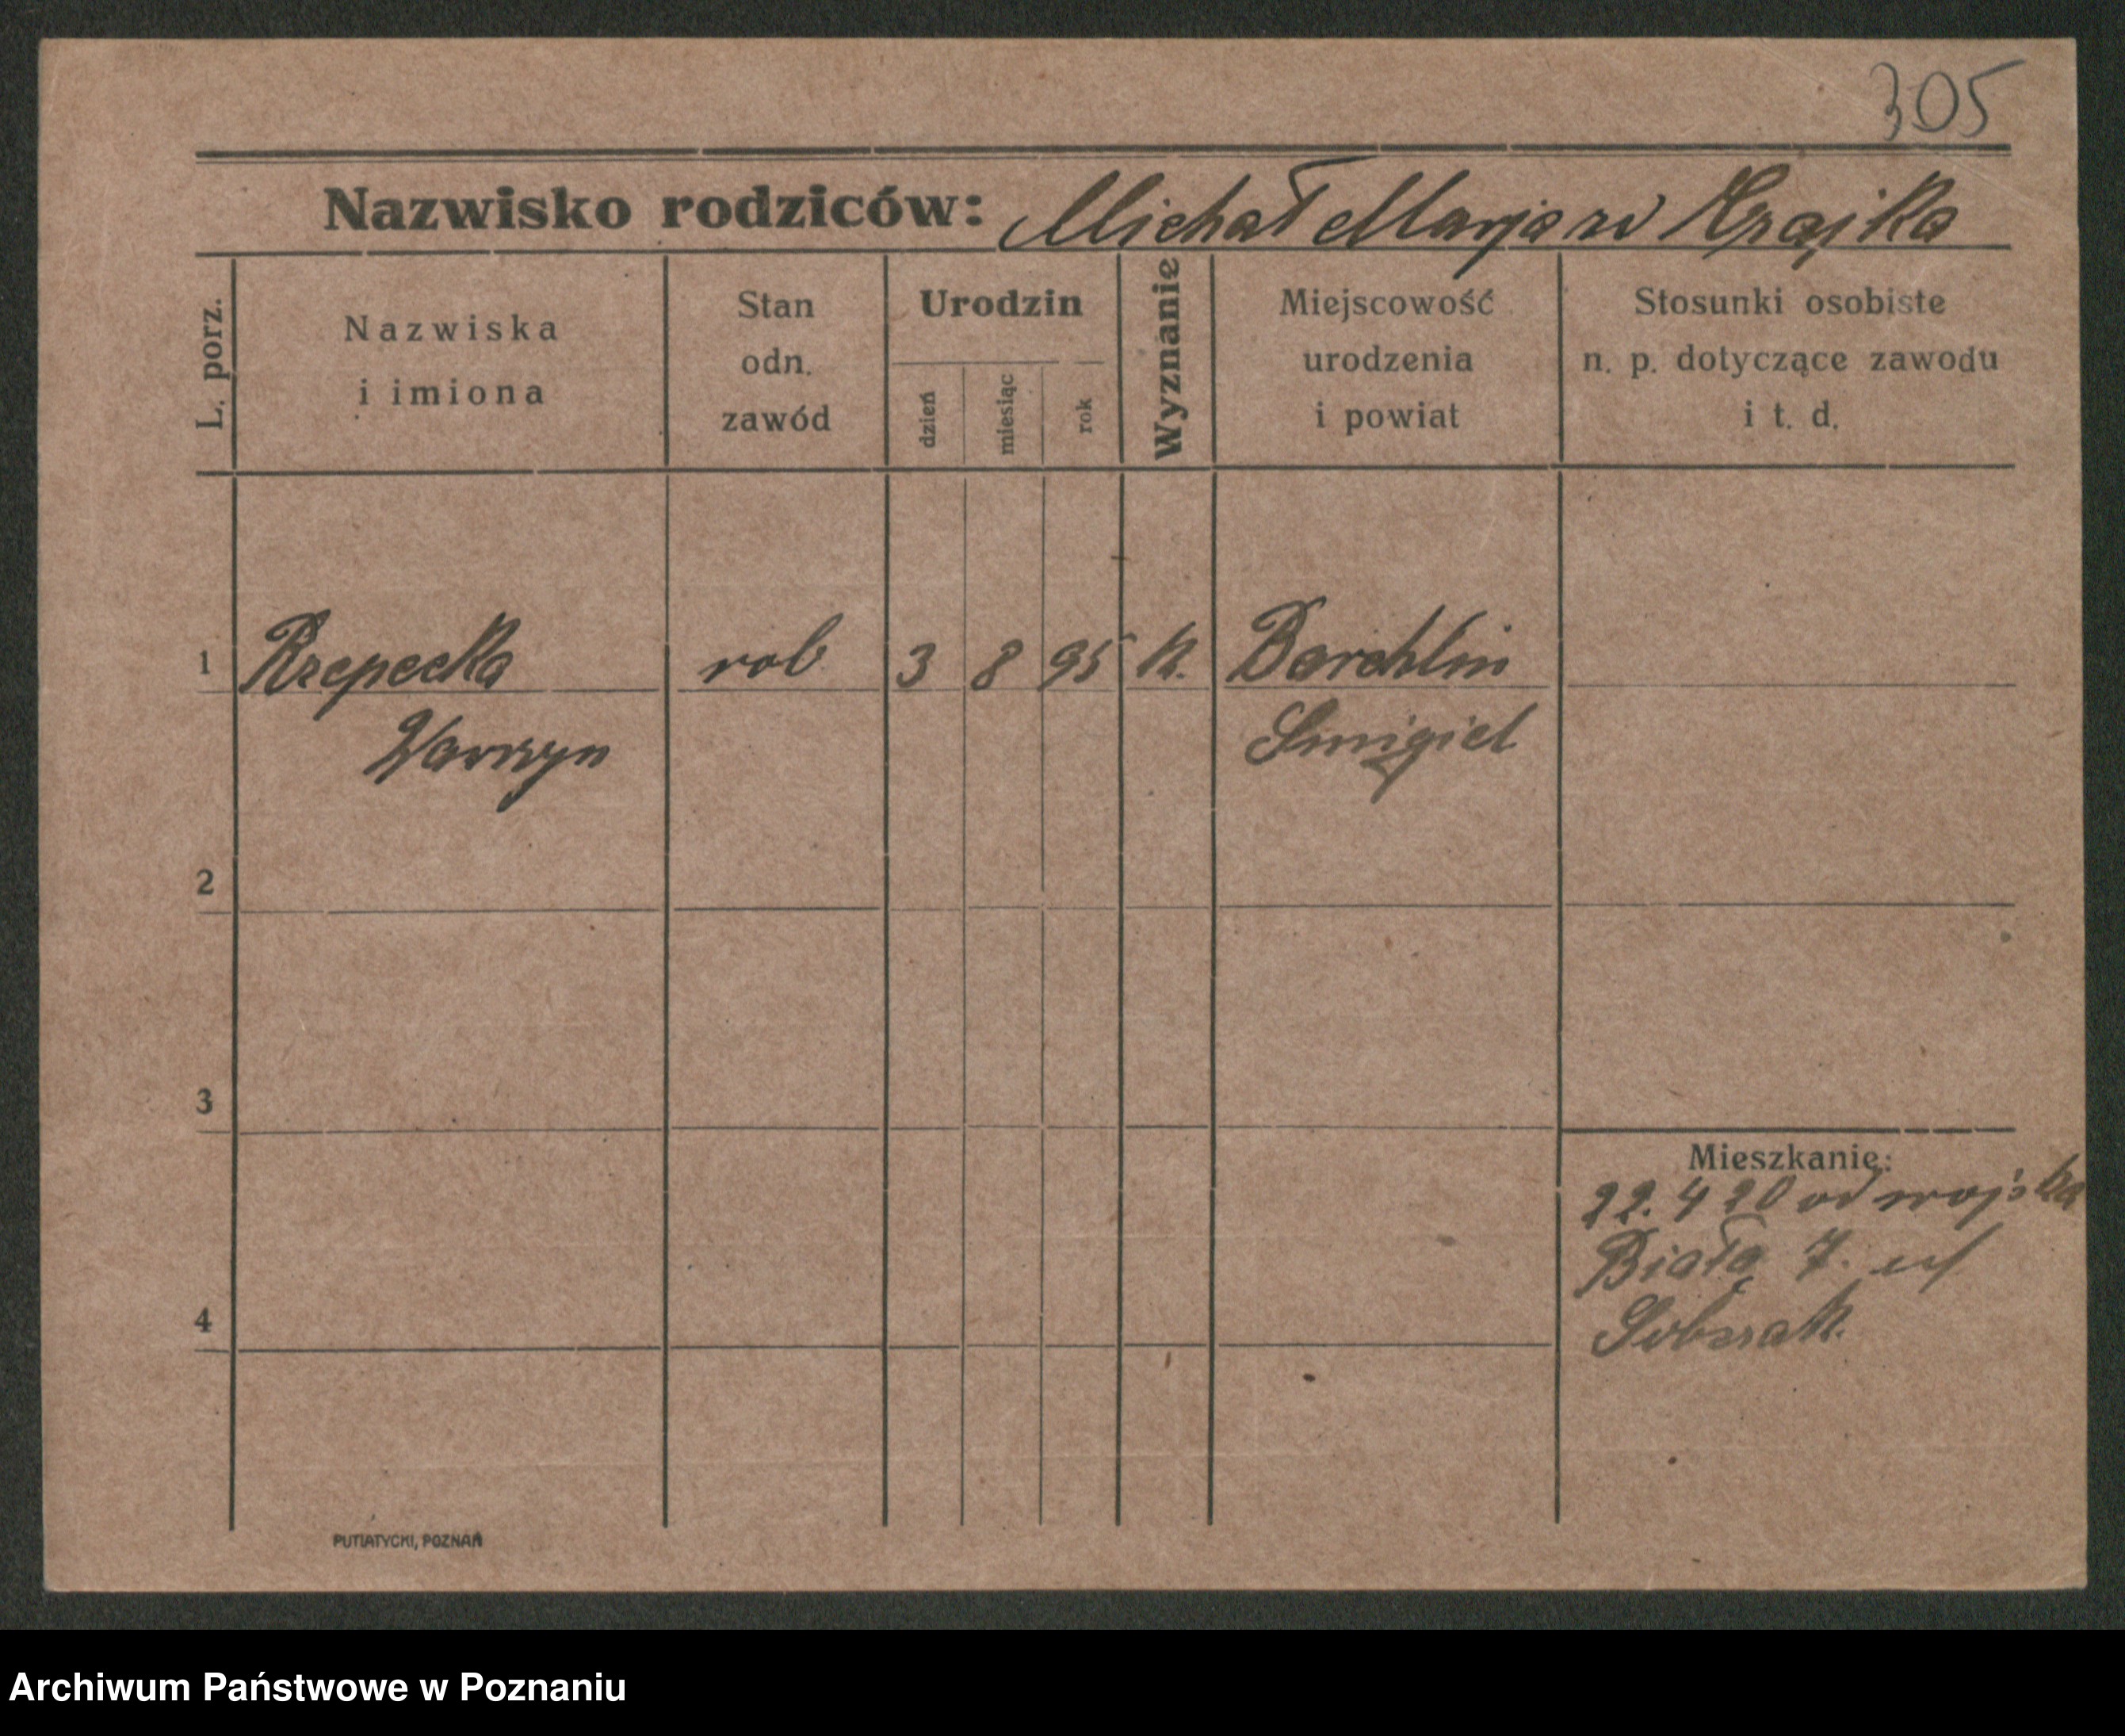 305
Nazwisko rodziców: Michał Marja zd Krajka
L. porz.
Nazwiska
i imiona
Stan
odn.
zawód
Urodzin
dzień
miesiąc
rok
Wyznanie
Miejscowość
urodzenia
i powiat
Stosunki osobiste
n. p. dotyczące zawodu
i t. d.
1 Rzepecka rob 3 8 95 k. Barchlin
Wawrzyn Smigiel
2
3
Mieszkanie:
22. 4 20 od wojska
Biała 7.
4
Sobzak.
PUTIATYCKI, POZNAŃ
Archiwum Państwowe w Poznaniu